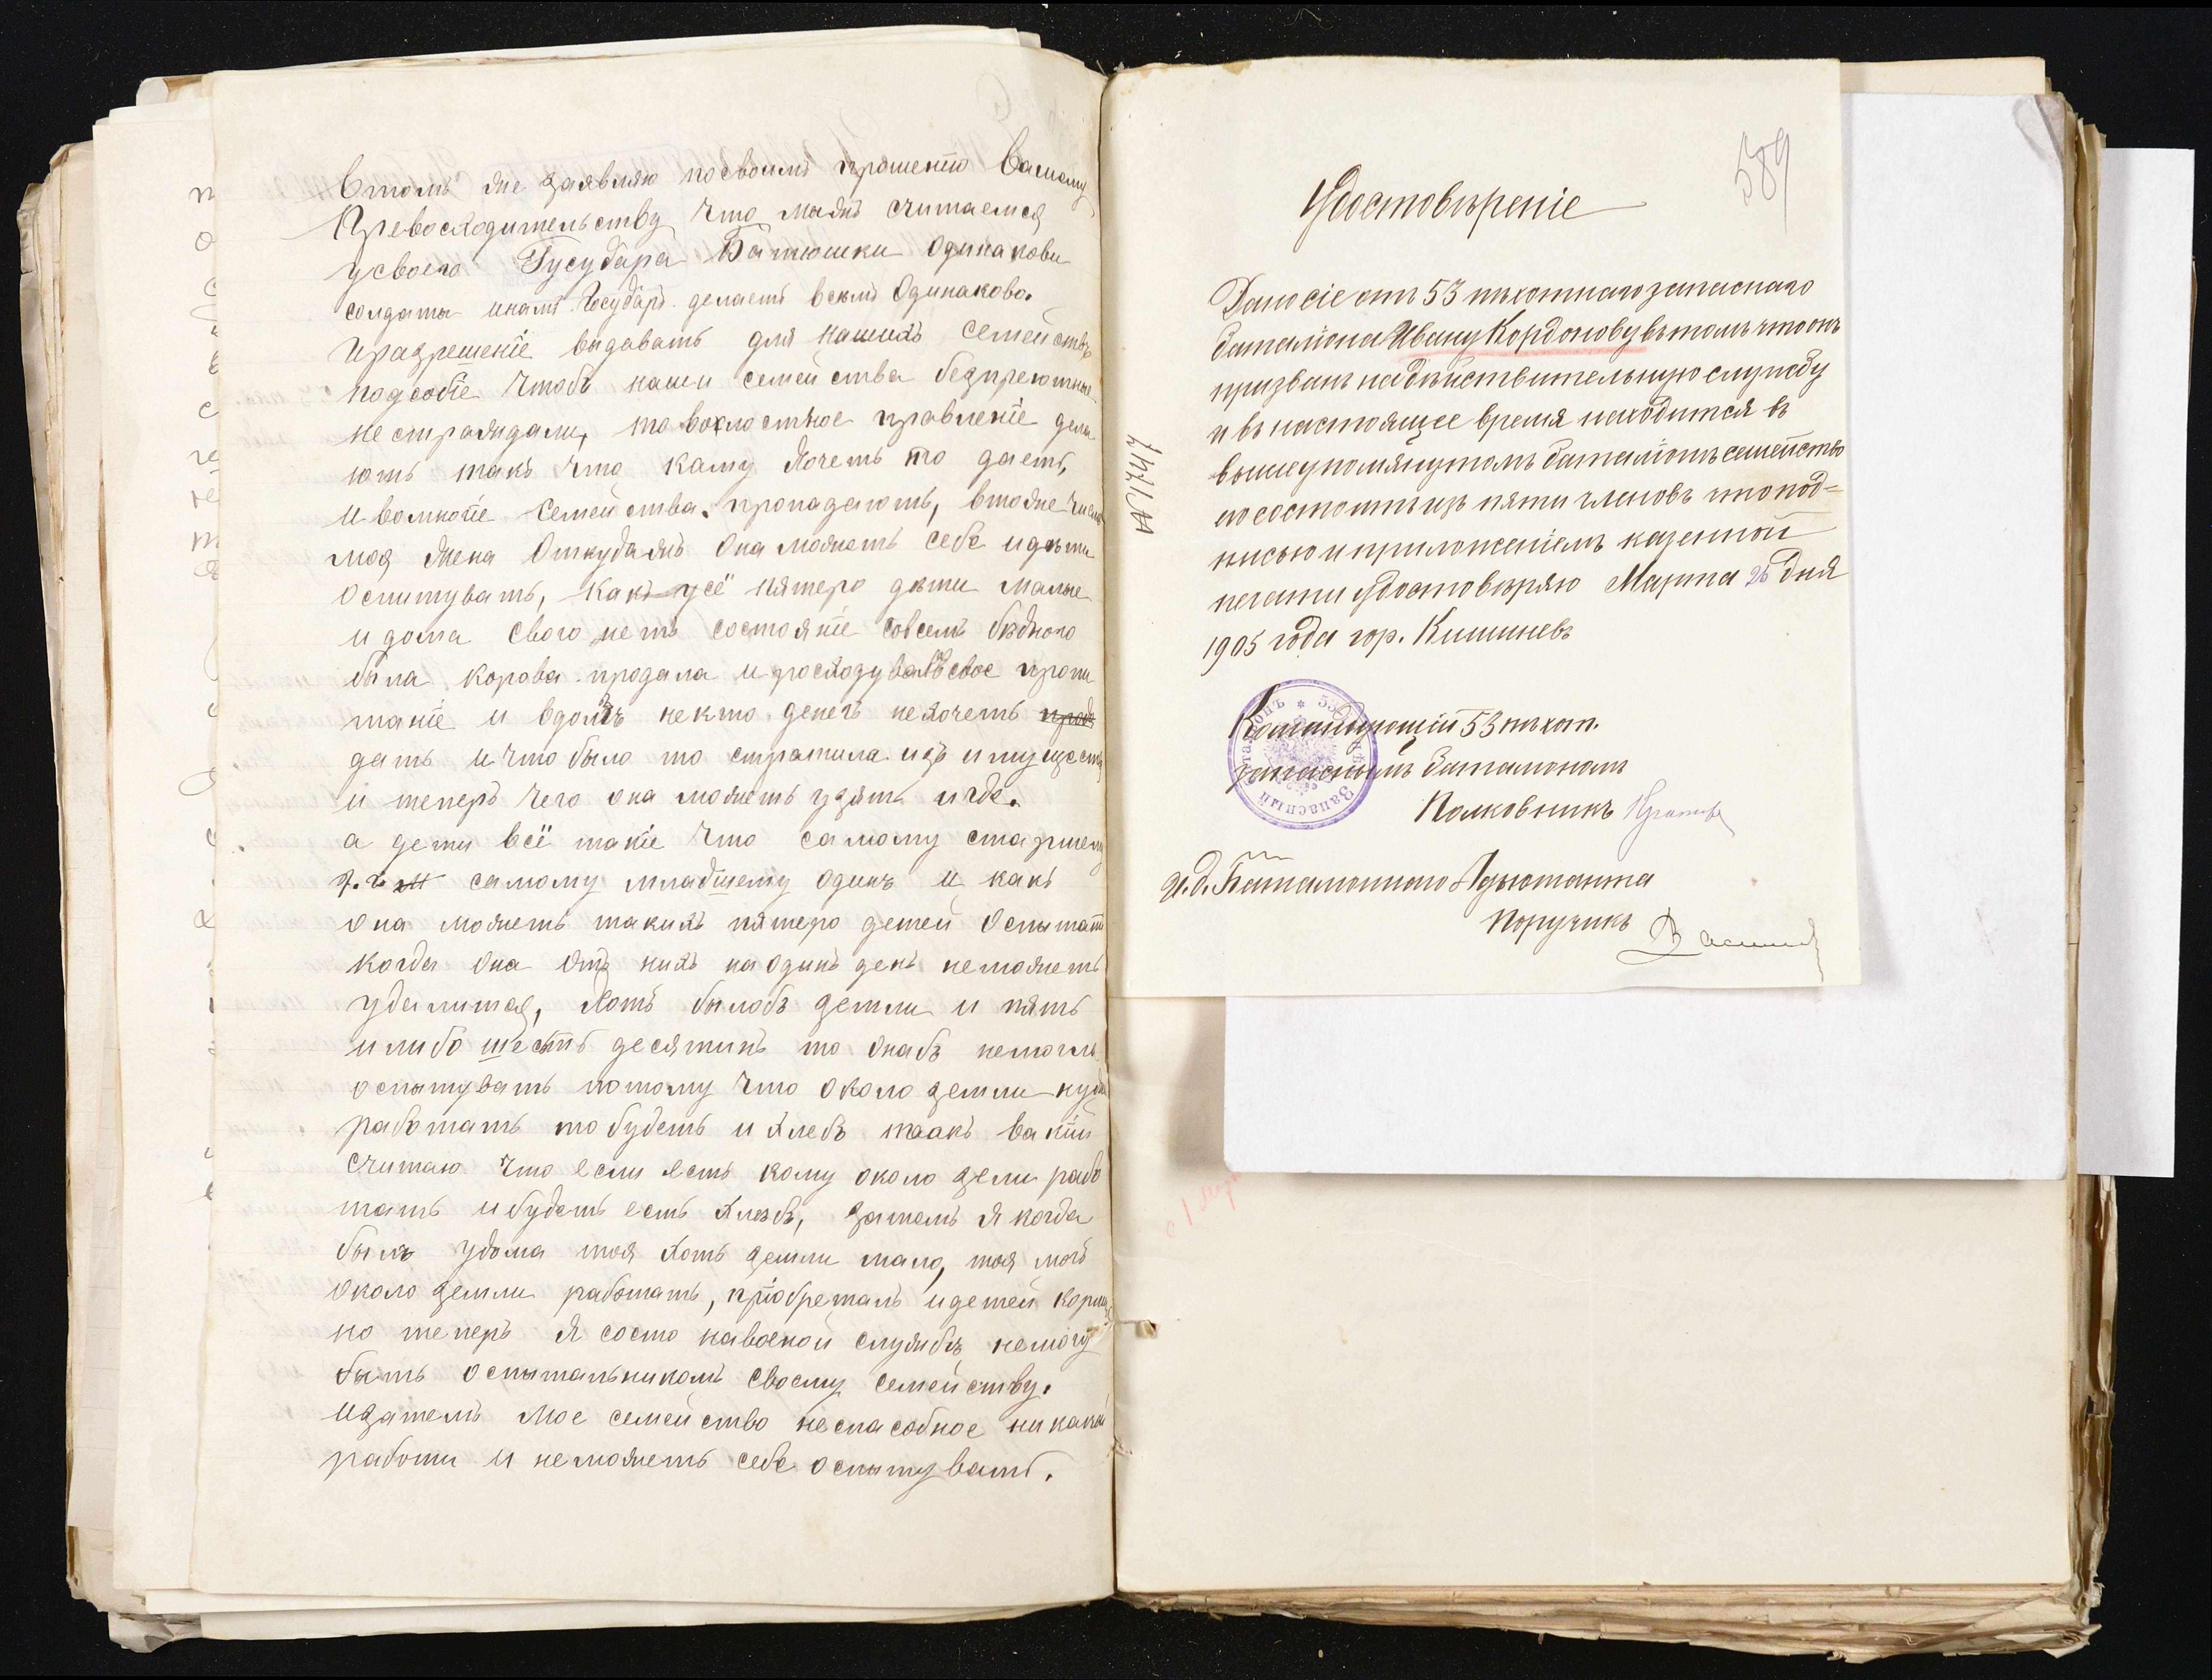 Втомъ же заявляю посвоимъ прошенію Вашому
Превосходительству что мыжъ считаемся
усвоего Гусударя Батюшки Одинакови
солдаты инамъ Государь делаетъ всемъ Одинаково.
Иразрешеніе выдавать для нашихъ семействъ
подсобіе чтобъ наши семейства безпреютные
нестраждали, то волостное правленіе дела
ютъ такъ что каму хочетъ то даетъ,
Ивомногіе Семейства пропадаютъ, втомже числе
моя жена Откудажъ Она можетъ себе идѣти
Оспитувать, Какъ усё пятеро дѣти малые
идома свого нетъ состояніе Совсемъ бѣдного
была корова продала и росходувала свое пропи
таніе и вдолгъ некто денегъ нехочетъ
дать и что было то стратила изъ имущества
и теперъ чего она можетъ узять и где.
а дети всё такіе что самому старшему
7. самому младшему одинъ и какъ
она можетъ такихъ пятеро детей Оспытать
когда Она Отъ нихъ на одинъ день неможетъ
удалится, Хоть былобъ земли и пять
илибо шесть десятинъ то Онабъ немогла
оспытувать потому что около земли нужно
работать то будетъ и хлебъ таакъ
считаю что если есть кому около зели рабо
тать ибудетъ есть Хлебъ, затемъ Я когда
былъ удома тоя Хоть земли мало, тоя могъ
Около земли работать, пріобреталъ идетей кормилъ
но теперъ Я состо навоеной службѣ немогу
быть оспытальникомъ своему семейству.
Изатемъ Мое семейство неспасобное никакой
работи и неможетъ себе оспытувать.
589
Удостовѣреніе
Дано сіе отъ 53 пѣхотнаго запаснаго
баталіона Ивану Кордонову въ томъ что онъ
призванъ на дѣйствительную службу
и въ настоящее время находится въ
вышеупомянутомъ баталіонѣ семейство
его состоитъ изъ пяти членовъ что под=
писью и приложеніемъ казенной
печати удостовѣряю Марта 26 дня
1905 года гор. Кишиневъ
Командующій 53 пѣхот.
запаснымъ баталіономъ
Полковникъ
И.д. Баталіоннаго Адъютанта
Поручикъ
Запасный баталіонъ * 53